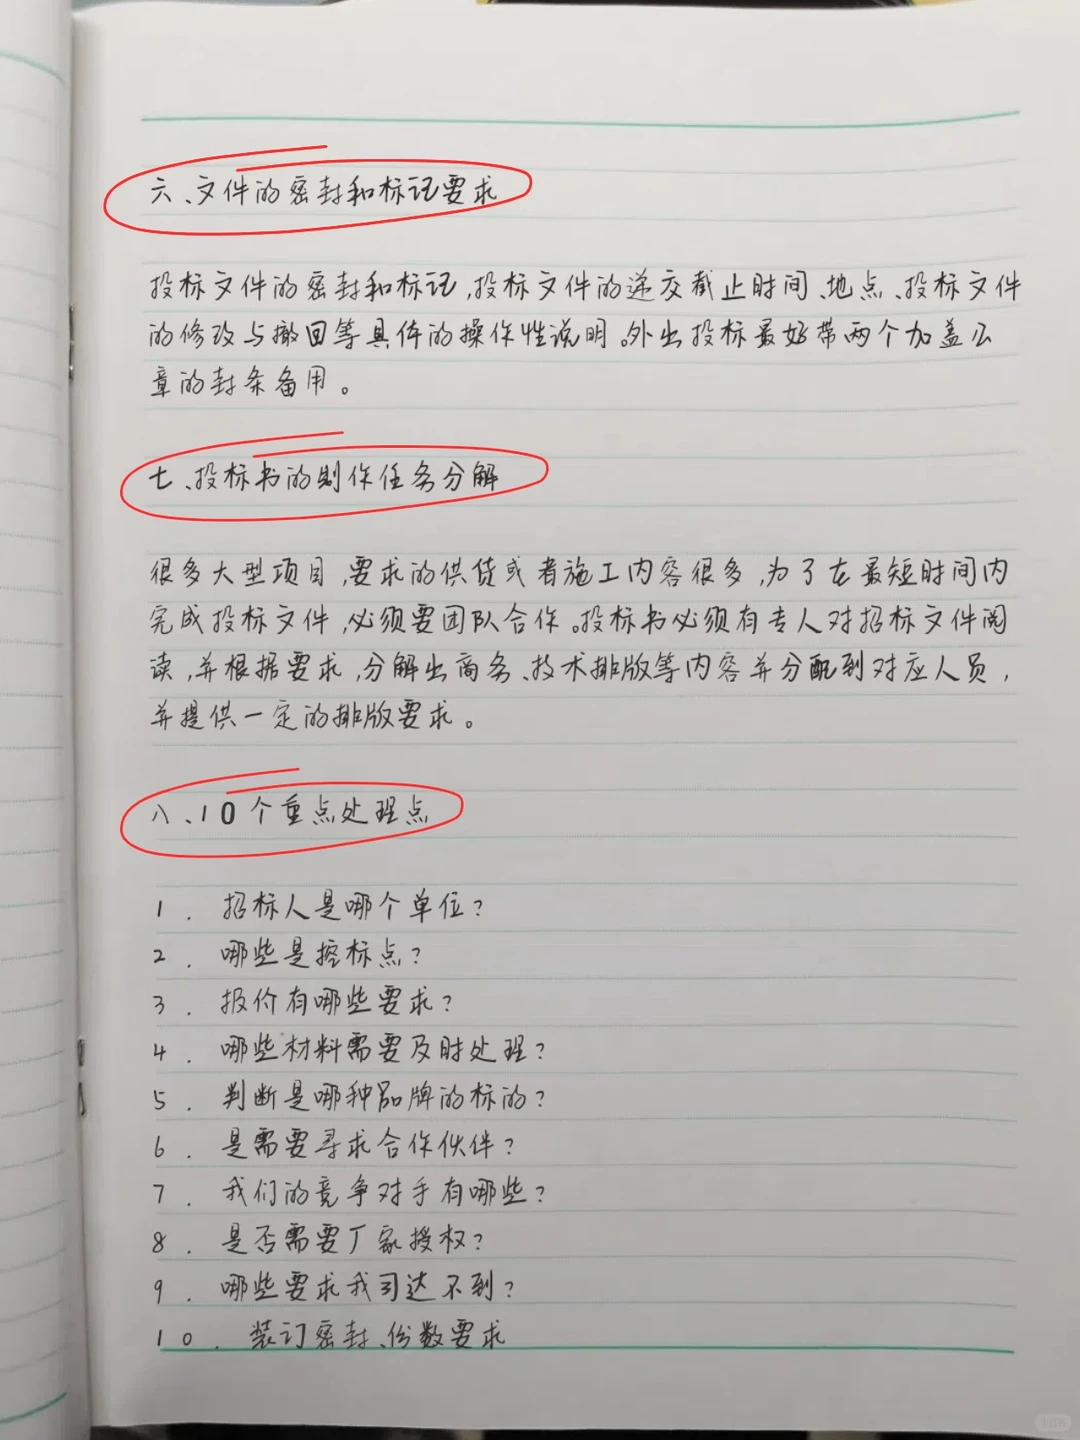 六、文件的密封和标记要求
投标文件的密封和标记,投标文件的递交截止时间、地点、投标文件
的修改与撤回等具体的操作性说明。外出投标最好带两个加盖公
章的封条备用。
七、投标书的制作任务分解
很多大型项目,要求的供货或者施工内容很多,为了在最短时间内
完成投标文件,必须要团队合作。投标书必须有专人对招标文件阅
读,并根据要求,分解出商务、技术排版等内容并分配到对应人员,
并提供一定的排版要求。
八、10个重点处理点
1. 招标人是哪个单位?
2. 哪些是控标点?
3. 报价有哪些要求?
4. 哪些材料需要及时处理?
5. 判断是哪种品牌的标的?
6. 是需要寻求合作伙伴?
7. 我们的竞争对手有哪些?
8. 是否需要厂家授权?
9. 哪些要求我司达不到?
10. 装订密封、份数要求
小红书